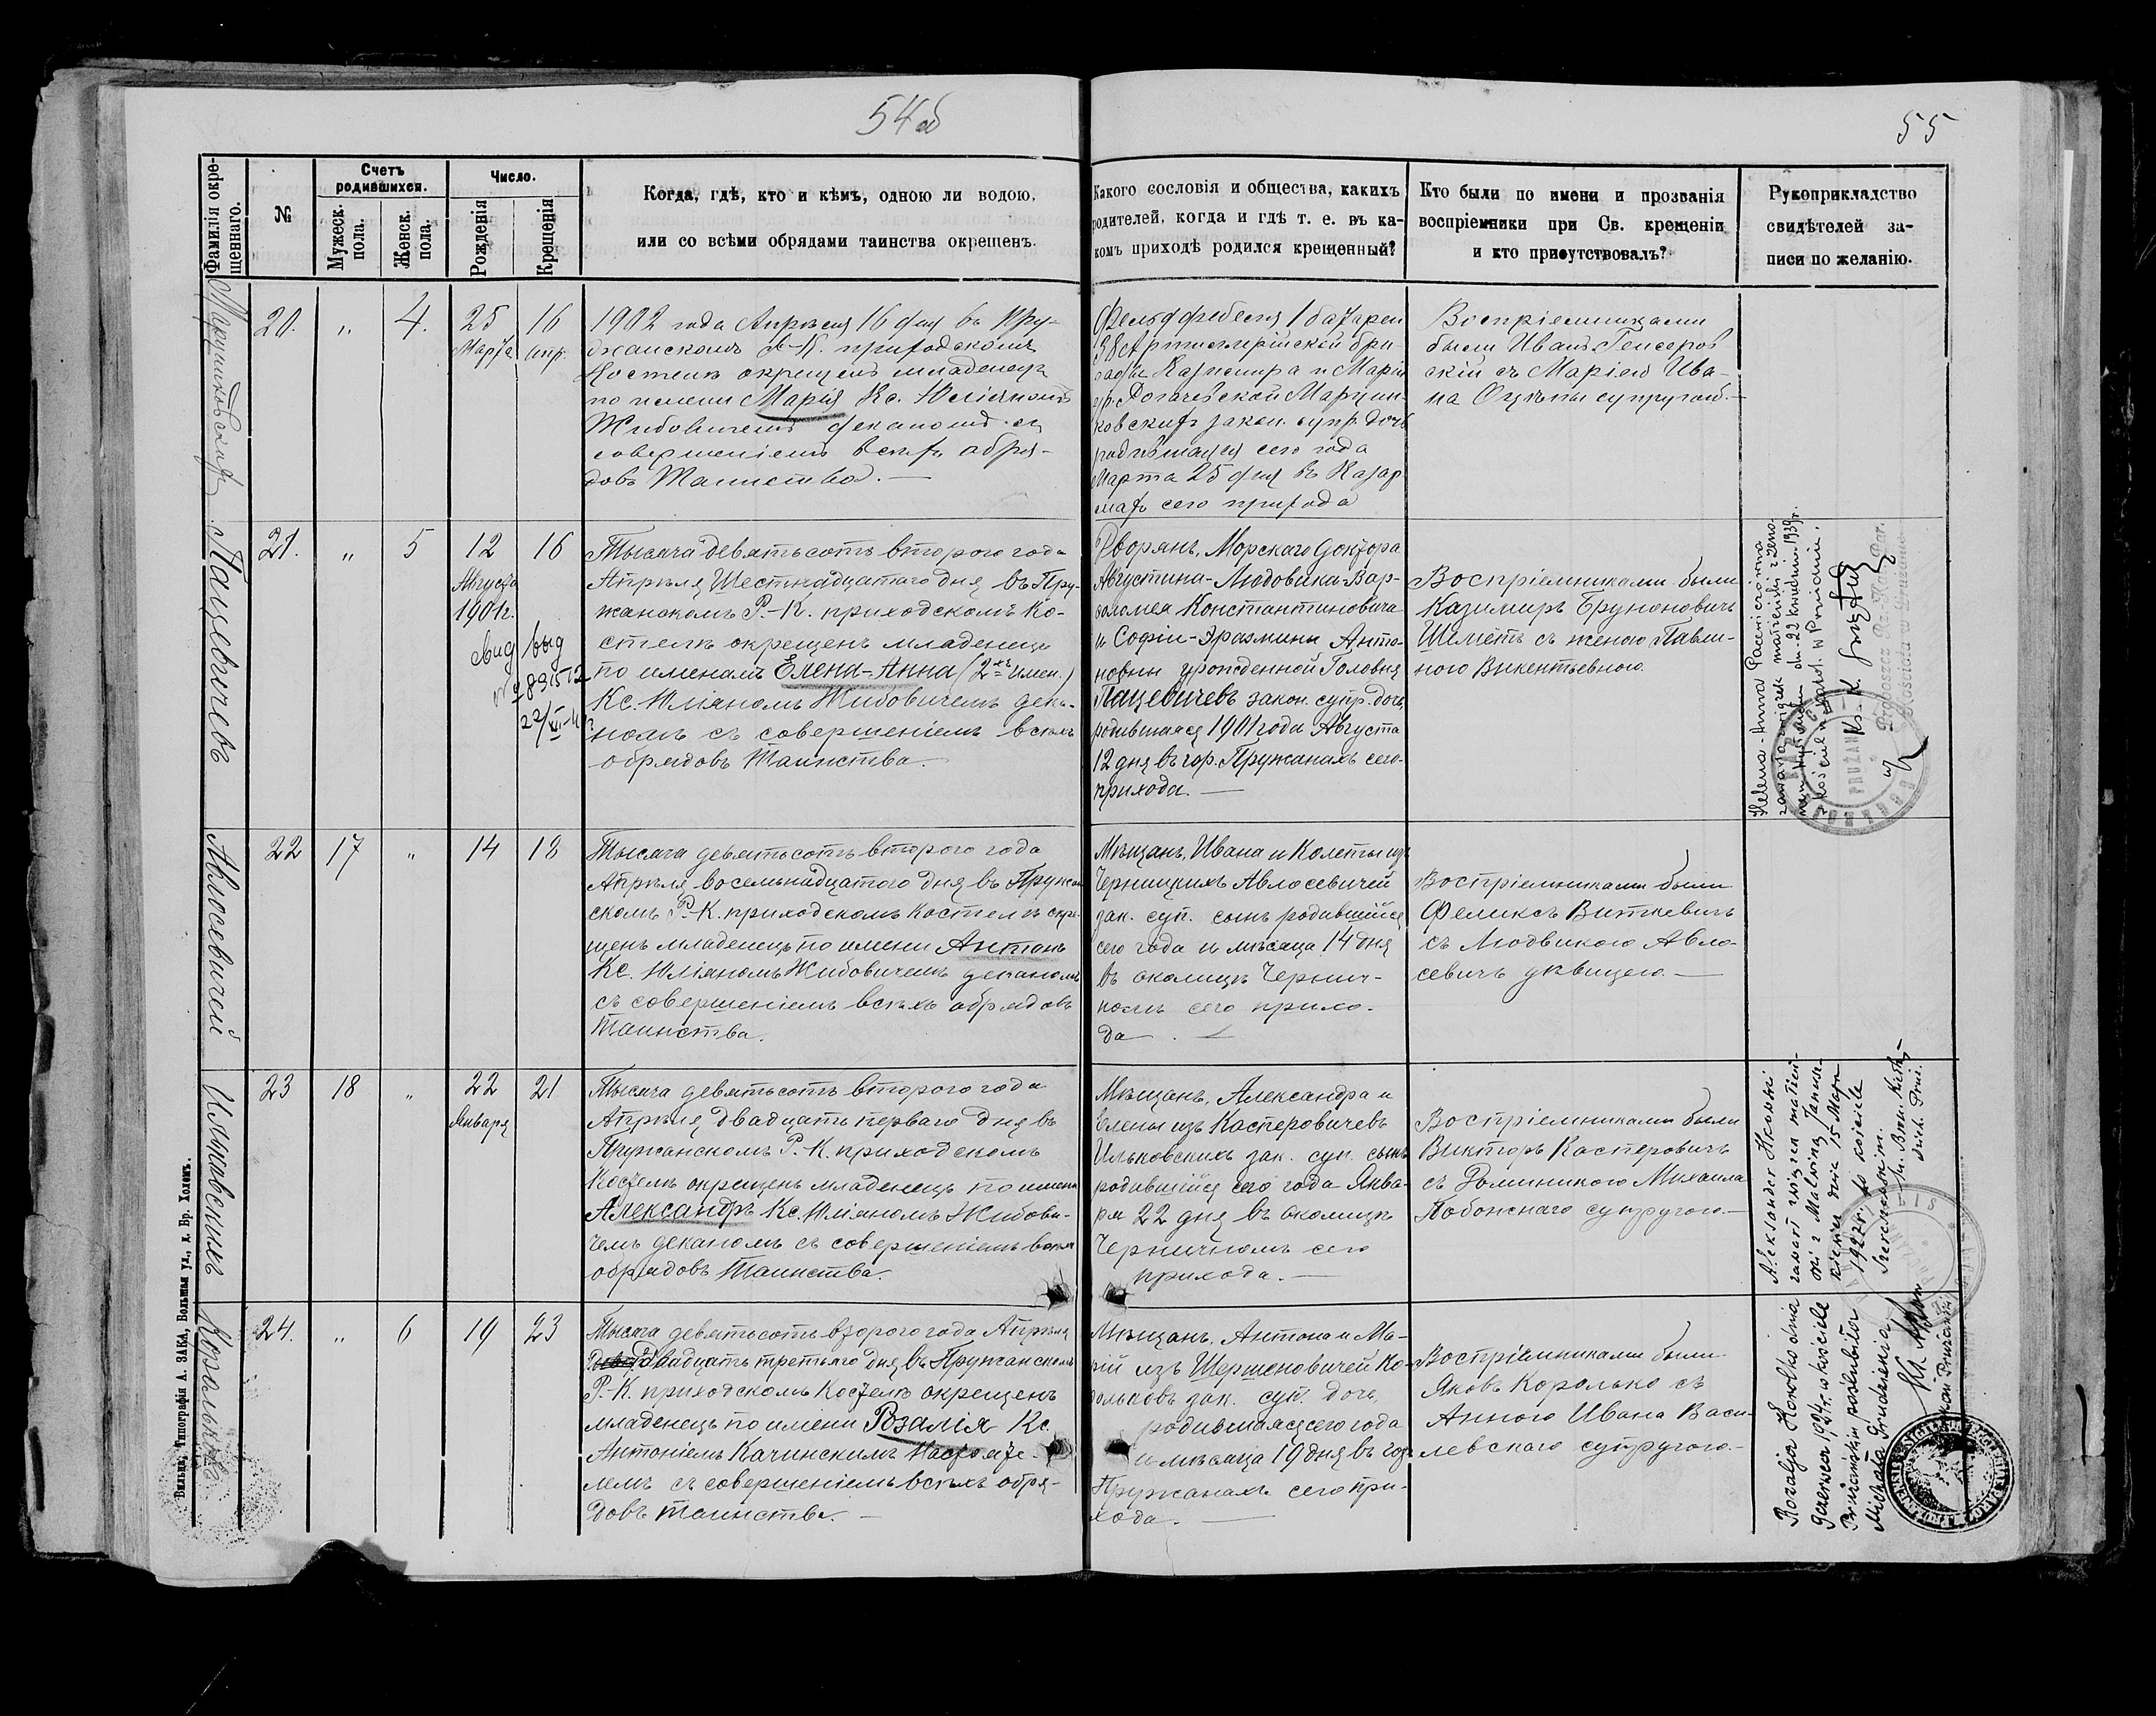 54 об
55
Фамилія окре-
щеннаго.
№
Счетъ
родившихся.
Мужеск.
пола.
Женск.
пола.
Число.
Рожденія
Крещенія
Когда, гдѣ, кто и кѣмъ, одною ли водою,
или со всѣми обрядами таинства окрещенъ.
Какого сословія и общества, какихъ
родителей, когда и гдѣ т. е. въ ка-
комъ приходѣ родился крещенный?
Кто были по имени и прозванія
воспріемники при Св. крещеніи
и кто присутствовалъ?
Рукоприкладство
свидѣтелей за-
писи по желанію.
20.
"
4.
25
Марта
16
Апр.
1902 года Апрѣля 16 дня въ Пру-
жанскомъ Р.-К. приходскомъ
Костелѣ окрещенъ младенецъ
по имени Марія Кс. Юліяномъ
Жибовичемъ деканомъ съ
совершеніемъ всѣхъ обря-
довъ Таинства. —
Фельдфебеля 1 батареи
38 Артиллерійской бри-
гады Казимира и Маріи
ур. Рогачевской Марцин-
ковскихъ закон. супр. дочь
родившаяся сего года
Марта 25 дня въ Казар-
махъ сего прихода
Воспріемниками
были Иванъ
скій съ Маріею Ива-
на супругою. —
Пацевичевъ
21.
"
5
12
Августа
1901 г.
16
выд
22/XII-
Тысяча девятьсотъ второго года
Апрѣля Шестнадцатаго дня въ Пру-
жанскомъ Р.-К. приходскомъ Ко-
стелѣ окрещенъ младенецъ
по именамъ Елена-Анна (2хъ имен.)
Кс. Юліяномъ Жибовичемъ дека-
номъ съ совершеніемъ всѣхъ
обрядовъ Таинства. —
Дворянъ, Морскаго Доктора
Августина-Людовика-Вар-
фоломея Константиновича
и Софіи-Эразмины Анто-
новны урожденной Головня
Пацевичевъ закон. супр. дочь,
родившаяся 1901 года Августа
12 дня въ гор. Пружанахъ сего
прихода. —
Воспріемниками были
Казимиръ Бруноновичъ
Шеметъ съ женою Павли-
ною Викентьевною.
Helena-Anna Pacewiczówna
zawarła związek małżeński z
dn. 22 kwietnia 1939 r.
w kościele w Poznaniu.
Ks. K.
Proboszcz Rz.-Kat. Par.
Kościoła w Prużanie
Авлосевичей
22
17
"
14
18
Тысяча девятьсотъ второго года
Апрѣля восемнадцатого дня въ Пружан-
скомъ Р.-К. приходскомъ Костелѣ окре-
щенъ младенецъ по имени Антонъ
Кс. Юліяномъ Жибовичемъ деканомъ
съ совершеніемъ всѣхъ обрядовъ
Таинства.
Мѣщанъ, Ивана и Колеты изъ
Черницкихъ Авлосевичей
зак. суп. сынъ родившійся
сего года и мѣсяца 14 дня
въ околицѣ Чернич-
номъ сего прихо-
да. —
Воспріемниками были
Феликсъ Виткевичъ
съ Людвикою Авло-
севичъ дѣвицею. —
Ильковскихъ
23
18
"
22
Января
21
Тысяча девятьсотъ второго года
Апрѣля двадцать перваго дня въ
Пружанскомъ Р.-К. приходскомъ
Костелѣ окрещенъ младенецъ по имени
Александръ Кс. Юліяномъ Жибови-
чемъ деканомъ съ совершеніемъ всѣхъ
обрядовъ Таинства.
Мѣщанъ, Александра и
Елены изъ Касперовичевъ
Ильковскихъ зак. суп. сынъ
родившійся сего года Янва-
ря 22 дня въ околицѣ
Черничномъ сего
прихода. —
Воспріемниками были
Викторъ Касперовичъ
съ Доминикою Михаила
Побожнаго супругою. —
Aleksander Ilkowski
zawarł związek małżeń-
ski z Malwiną Janusz-
dnia 15 Maja
1922 r. w kościele
Szereszowskim.
Корольковъ
24.
"
6
19
23
Тысяча девятьсотъ второго года Апрѣля
Двадцать третьяго дня въ Пружанскомъ
Р.-К. приходскомъ Костелѣ окрещенъ
младенецъ по имени Розалія Кс.
Антоніемъ Качинскимъ Настояте-
лемъ съ совершеніемъ всѣхъ обря-
довъ Таинства. —
Мѣщанъ, Антона и Ма-
ріи изъ Шершеновичей Ко-
ольковъ зак. суп. дочь,
родившаяся сего года
и мѣсяца 19 дня въ гор.
Пружанахъ сего при-
хода. —
Воспріемниками были
Яковъ Королько съ
Анною Ивана Васи-
левскаго супругою. —
Rozalja Horolko dnia
czerwca 1924 r. w kościele
Prużańskim poślubiła
Michała
Вильна, Типографія А. ЗАКА, Большая ул., д. Бр. Холемъ.